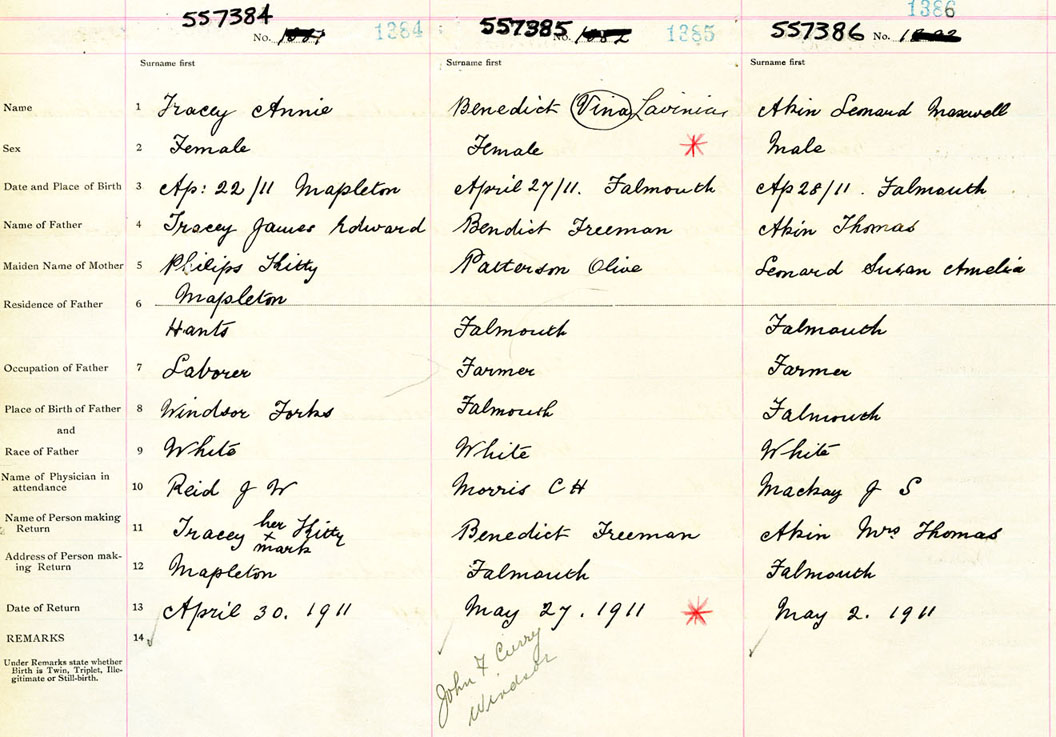 557384 557385 557386 1386
No. 1384 No. 1385 No.
Surname first Surname first Surname first
Name 1 Tracey Annie Benedict Vina Lavinia Akin Leonard Maxwell
Sex 2 Female Female Male
Date and Place of Birth 3 Ap: 22/11 Mapleton April 27/11. Falmouth Ap 28/11. Falmouth
Name of Father 4 Tracey James Edward Bendict Freeman Akin Thomas
Maiden Name of Mother 5 Philips Kitty Patterson Olive Leonard Susan Amelia
Mapleton
Residence of Father 6
Hants Falmouth Falmouth
Occupation of Father 7 Laborer Farmer Farmer
Place of Birth of Father 8 Windsor Forks Falmouth Falmouth
and
Race of Father 9 White White White
Name of Physician in
attendance 10 Reid J W Morris C H Mackay J S
Name of Person making
Return 11 Tracey her x mark Kitty Benedict Freeman Akin Mrs Thomas
Address of Person mak-
ing Return 12 Mapleton Falmouth Falmouth
Date of Return 13 April 30. 1911 May 27. 1911 May 2. 1911
REMARKS 14
Under Remarks state whether
Birth is Twin, Triplet, Ille-
gitimate or Still-birth.
John F Curry
Windsor